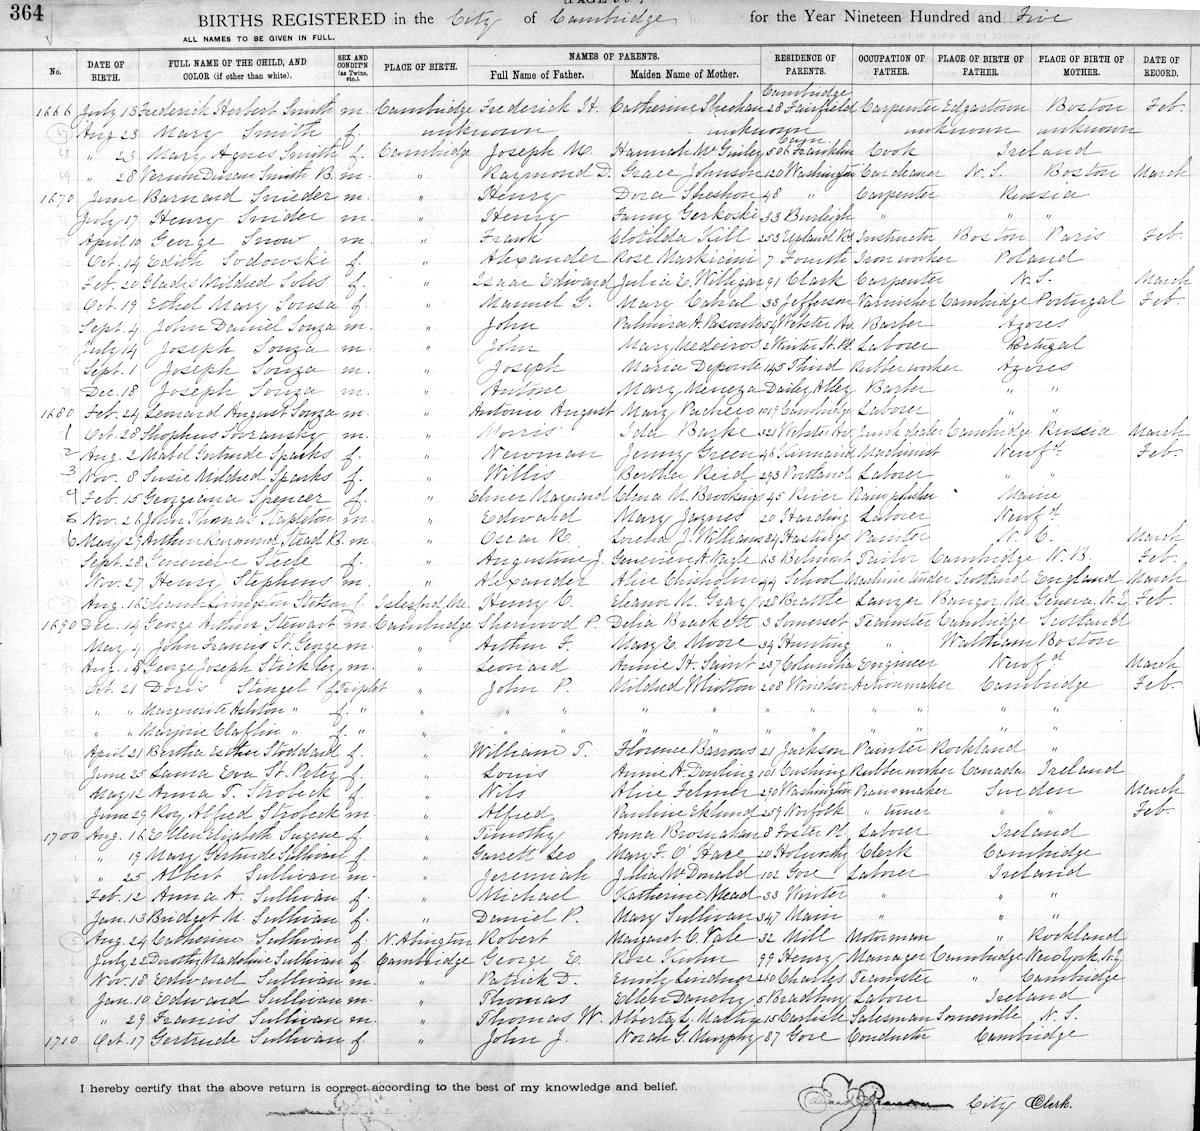 364
BIRTHS REGISTERED in the City of Cambridge for the Year Nineteen Hundred and Five
ALL NAMES TO BE GIVEN IN FULL.
No. DATE OF BIRTH. FULL NAME OF THE CHILD, AND COLOR (if other than white). SEX AND CONDIT'N (as Twins, etc.) PLACE OF BIRTH. NAMES OF PARENTS. Full Name of Father. Maiden Name of Mother. RESIDENCE OF PARENTS. OCCUPATION OF FATHER. PLACE OF BIRTH OF FATHER. PLACE OF BIRTH OF MOTHER. DATE OF RECORD.
1666 July 13 Frederick Herbert Smith m. Cambridge Frederick H. Catherine Sheehan Cambridge 28 Fairfield Carpenter Edgartown Boston Feb.
Aug 23 Mary Smith f. unknown unknown unknown unknown
" 23 Mary Agnes Smith f. Cambridge Joseph M. Hannah McGinley Cam. 506 Franklin Cook Ireland
" 28 Vernon Smith B. m. " Raymond D. Grace Johnson 120 Washington Car cleaner N.S. Boston March
1670 June Barnard Snieder m. " Henry Dora Sheshon 48 " Carpenter Russia
July 17 Henry Snider m. " Henry Fanny Gerkoski 33 Burleigh " " "
April 10 George Snow m. " Frank Clotilda Kill 253 Upland Rd. Instructor Boston Paris Feb.
Oct. 14 Edith Sodowski f. " Alexander Rose Markiani 7 Fourth Iron worker Poland
Feb. 20 Gladys Mildred Soles f. " Isaac Edward Julia E. Willigar 91 Clark Carpenter N.S. March
Oct. 19 Ethel Mary Sousa f. " Manuel G. Mary Cabral 38 Jefferson Varnisher Cambridge Portugal Feb.
Sept. 4 John Daniel Souza m. " John Palmira A. 54 Webster Av. Barber Azores
July 14 Joseph Souza m. " John Mary Medeiros 2 Winter St. Pl. Laborer Portugal
Sept. 1 Joseph Souza m. " Joseph Maria Deponte 145 Third Rubber worker Azores
Dec. 18 Joseph Souza m. " Antone Mary Meneza Daily Alley Barber " "
1680 Feb. 24 Leonard August Souza m. " Antonio August Mary Pacheco 1019 Cambridge Laborer " "
1 Oct. 28 Shopheus Sovransky m. " Morris Ida Barke 321 Webster Av. Junk dealer Cambridge Russia March
2 Aug. 2 Mabel Gertrude Sparks f. " Newman Jenny Green 46 Kinnaird Machinist Newf'd Feb.
3 Nov. 8 Susie Mildred Sparks f. " Willis Bertha Reid 293 Portland Laborer " "
4 Feb. 15 Georgiana Spencer f. " Elmer Maynard Clena M. Brookings 45 River Piano polisher Maine
5 Nov. 26 John Thomas Stapleton m. " Edward Mary Jaynes 20 Harding Laborer Newf'd
6 May 29 Arthur Raymond Stead B. m. " Oscar R. Loretta J. Williams 84 Hastings Painter N.C. March
Sept. 28 Genevieve Steele f. " Augustine J. Genevieve A. Nagle 23 Belmont Tailor Cambridge N.B. Feb.
Nov. 27 Henry Stephens m. " Alexander Alice Chisholm 44 School Machine tender Scotland England March
Aug. 16 Eleanor Livingston Stetson f. Islesford, Me. Henry C. Eleanor M. Gray 128 Brattle Lawyer Bangor Me. Geneva, N.Y. Feb.
1690 Dec. 14 George Arthur Stewart m. Cambridge Sherwood P. Delia Brackett 3 Somerset Teamster Cambridge Scotland
May 4 John Francis St. George m. " Arthur F. Mary E. Moore 34 Hunting " Waltham Boston
Aug. 15 George Joseph Stickley m. " Leonard Annie H. Saint 257 Columbia Engineer Newf'd March
Oct. 21 Doris Stingel f. Triplet " John P. Mildred Whitton 208 Windsor Action maker Cambridge Feb.
" " Marguerite Ashton " f. " " " " " " "
" " Marjorie Claflin " f. " " " " " " "
April 21 Bertha Esther Stoddard f. " William T. Florence Barrows 21 Jackson Painter Rockland "
June 25 Laura Eva St. Peter f. " Louis Annie A. Dowling 101 Cushing Rubber worker Canada Ireland
May 12 Anna T. Strobeck f. " Nils Alice Felmer 290 Washington Piano maker Sweden March
June 29 Roy Alfred Strobeck m. " Alfred Pauline Eklund 259 Norfolk " tuner " Feb.
1700 Aug. 16 Ellen Elizabeth Sugrue f. " Timothy Anna Brosnahan 8 Foster Pl. Laborer Ireland
" 19 Mary Gertrude Sullivan f. " Garrett Leo Mary F. O'Hare 20 Holworthy Clerk Cambridge
" 25 Albert Sullivan m. " Jeremiah Julia McDonald 102 Gore Laborer Ireland
Feb. 12 Anna A. Sullivan f. " Michael Katherine Mead 33 Winter " " "
Jan. 13 Bridget M. Sullivan f. " Daniel P. Mary Sullivan 347 Main " " "
Aug. 24 Catherine Sullivan f. N. Abington Robert Margaret C. Vale 32 Mill Motorman " Rockland
July 22 Dorothy Madeline Sullivan f. Cambridge George E. Rose Kuhn 99 Henry Manager Cambridge New York N.Y.
Nov. 18 Edward Sullivan m. " Patrick D. Emily Lindner 210 Charles Teamster " Cambridge
Jan. 10 Edward Sullivan m. " Thomas Ellen Danehy 5 Bradbury Laborer Ireland
" 29 Francis Sullivan m. " Thomas W. Alberta L. 15 Carlisle Salesman Somerville N.S.
1710 Oct. 17 Gertrude Sullivan f. " John J. Norah G. Murphy 87 Gore Conductor Cambridge
I hereby certify that the above return is correct according to the best of my knowledge and belief.
City Clerk.